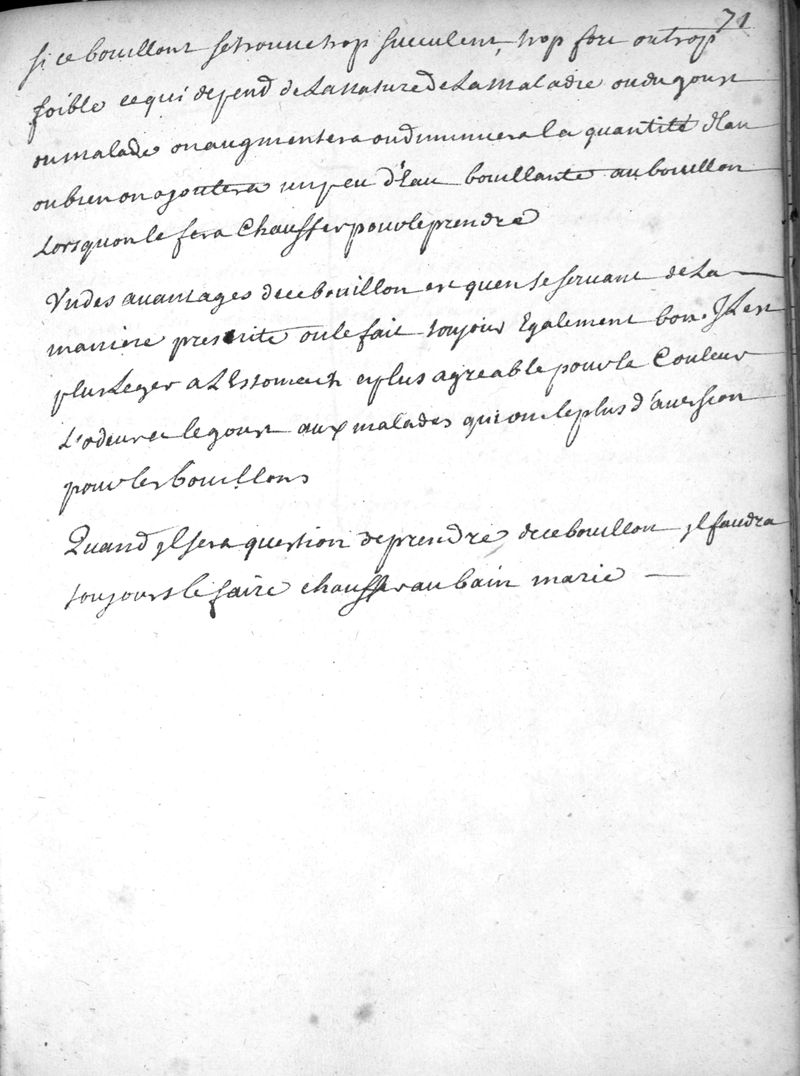 71
si ce bouillont se trouve trop succulent, trop fort ou trop
foible ce qui depend de La nature de La maladie ou du goust
du malade on augmentera ou diminuera la quantité d'eau
ou bien on ajoutera un peu d'Eau bouillante au bouillon
Lorsquon le fera Chauffer pour le prendre
Un des avantages de ce bouillon est quen se servant de La
maniere prescrite on le fait toujour Egalement bon. JL est
plus Leger a L'Estomach et plus agreable pour la Couleur
L'odeur et le goust aux malades qui ont le plus d'aversion
pour les bouillons
Quand jl sera question de prendre de ce bouillon jl faudra
toujours le faire chauffer au bain marie